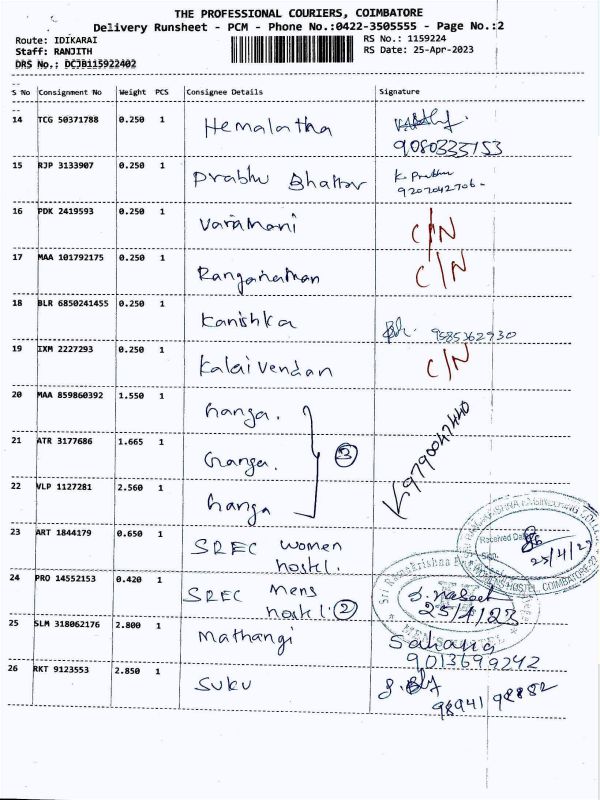 THE PROFESSIONAL COURIERS, COIMBATORE
Delivery Runsheet - PCM - Phone No.:0422-3505555 - Page No.:2
Route: IDIKARAI RS No.: 1159224
Staff: RANJITH RS Date: 25-Apr-2023
DRS No.: DCJB115922402
S No Consignment No Weight PCS Consignee Details Signature
14 TCG 50371788 0.250 1 Hemalatha
9080333753
15 RJP 3133907 0.250 1 Prabhu Bhattar K. Prabhu
9207042706-
16 PDK 2419593 0.250 1 Varamani C/N
17 MAA 101792175 0.250 1 Ranganathan C/N
18 BLR 6850241455 0.250 1 Kanishka 9585362930
19 IXM 2227293 0.250 1 Kalaivendan C/N
20 MAA 859860392 1.550 1 Ganga.
21 ATR 3177686 1.665 1 Ganga. 3 9790042440
22 VLP 1127281 2.560 1 Ganga
23 ART 1844179 0.650 1 SREC women
hostel.
Received Date
Sign.
25/4/23
24 PRO 14552153 0.420 1 SREC mens
hostel. 2
25/4/23
MENS HOSTEL
25 SLM 318062176 2.800 1 Mathangi Sahana
9013699242
26 RKT 9123553 2.850 1 Suku
98941 98852